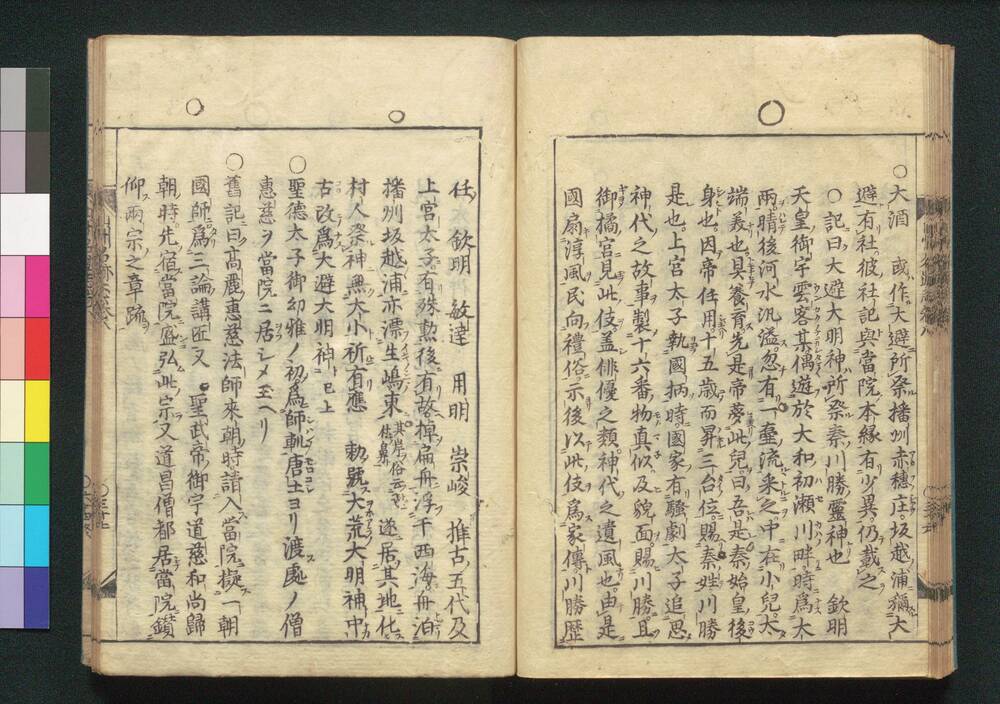 ○大酒 或作大避所祭播州赤穂庄坂越浦稱大
避有社彼社記與當院本縁有少異仍載之
○記曰大避大明神所祭秦川勝靈神也 欽明
天皇御宇雲客某偶遊於大和初瀬川畔時爲大
雨晴後河水汎溢忽有一壺流来之中在小兒太
端美也具養育先是帝夢此兒曰吾是秦始皇後
身也因帝任用十五歳而昇三台位賜秦姓川勝
是也上宮太子執國柄時國家有騷劇太子追思
神代之故事製十六番物真似及貌面賜川勝且
御橘宮見此伎盖俳優之類神代之遺風也由是
國扇淳風民向禮俗示後以此伎爲家傳川勝歴
任 欽明 敏達 用明 崇峻 推古五代及
上宮太子有殊勲後有故掉扁舟浮于西海舟泊
播州坂越浦亦漂生嶋東 遂居其地化
村人祭神無大小祈有應 勅號大荒大明神中
古改爲大避大明神已上
○聖德太子御幼雅ノ初爲師軌唐土ヨリ渡處ノ僧
惠慈ヲ當院ニ居シメ玉ヘリ
○舊記曰高麗惠慈法師来朝時請入當院擬一朝
國師爲三論講匠又 聖武帝御宇道慈和尚歸
朝時先宿當院盛弘此宗又道昌僧都居當院鑚
仰兩宗之章疏